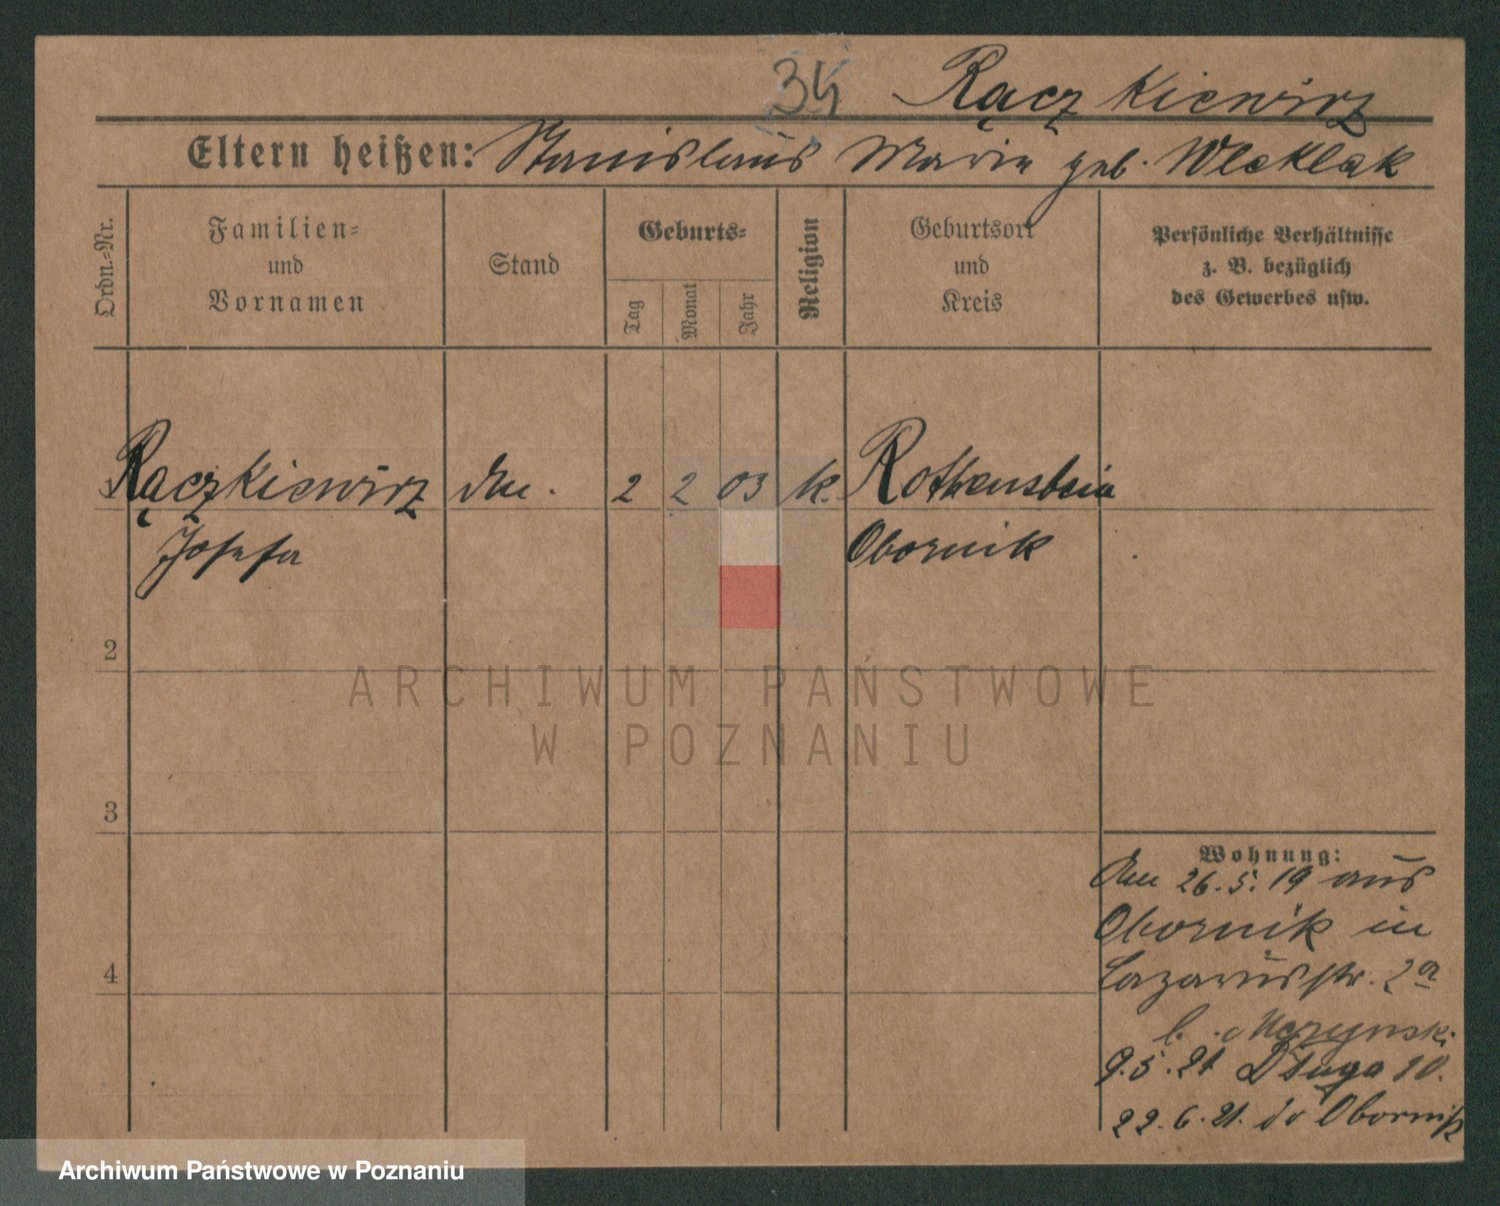 34 Rączkiewicz
Eltern heißen: Stanislaus Maria geb. Wleklak
Ordn.-Nr.
Familien- und Vornamen
Stand
Geburts-
Tag
Monat
Jahr
Religion
Geburtsort und Kreis
Persönliche Verhältnisse
z. B. bezüglich
des Gewerbes usw.
Rączkiewicz 2 2 03 k. Rothenstein
Josefa Obornik
2
3
4
Wohnung:
den 26.5.19 aus
Obornik in
Lazarusstr. 2a
b.
9.5.21 Długa 10.
22.6.21. do Obornik
ARCHIWUM PAŃSTWOWE
W POZNANIU
Archiwum Państwowe w Poznaniu